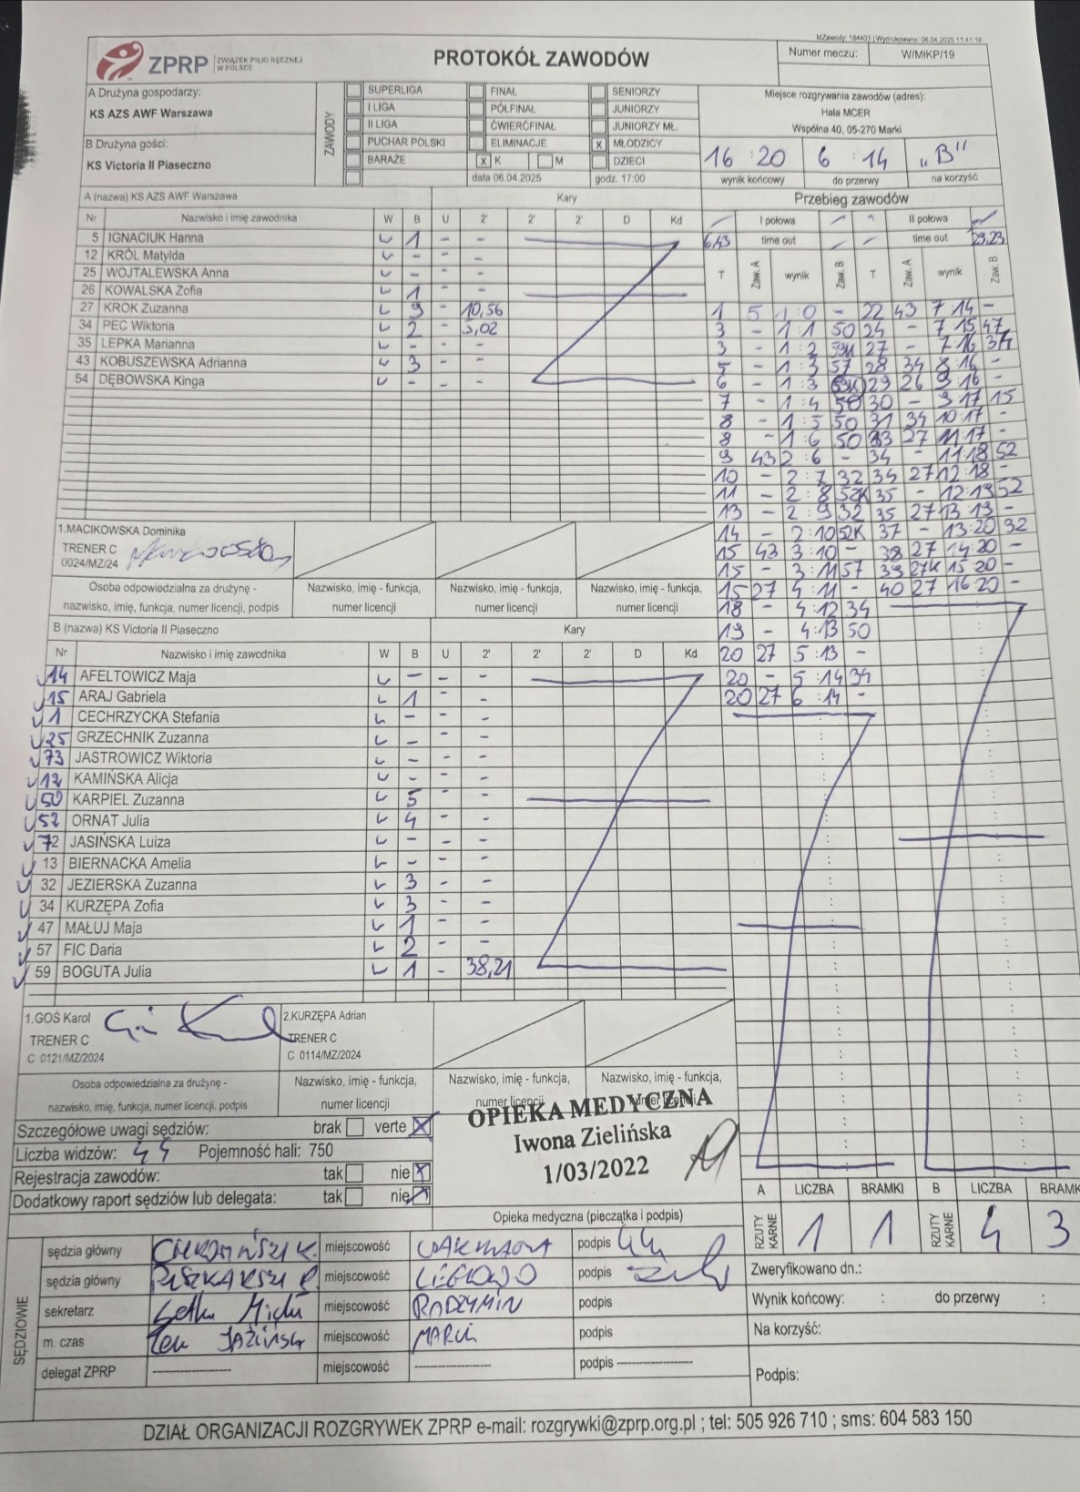 IdZawody: 184403 | Wydrukowano: 06.04.2025 11:41:16
ZPRP ZWIĄZEK PIŁKI RĘCZNEJ W POLSCE
PROTOKÓŁ ZAWODÓW
Numer meczu: W/MłKP/19
A Drużyna gospodarzy:
KS AZS AWF Warszawa
B Drużyna gości:
KS Victoria II Piaseczno
ZAWODY
SUPERLIGA FINAŁ SENIORZY
I LIGA PÓŁFINAŁ JUNIORZY
II LIGA ĆWIERĆFINAŁ JUNIORZY MŁ.
PUCHAR POLSKI ELIMINACJE x MŁODZICY
BARAŻE x K M DZIECI
data 06.04.2025 godz. 17:00
Miejsce rozgrywania zawodów (adres):
Hala MCER
Wspólna 40, 05-270 Marki
16 : 20 6 : 14 „B"
wynik końcowy do przerwy na korzyść
A (nazwa) KS AZS AWF Warszawa Kary
Nr Nazwisko i imię zawodnika W B U 2' 2' 2' D Kd
5 IGNACIUK Hanna 1 - -
12 KRÓL Matylda - - -
25 WOJTALEWSKA Anna - - -
26 KOWALSKA Zofia 1 - -
27 KROK Zuzanna 9 - 10,56
34 PEC Wiktoria 2 - 5,02
35 LEPKA Marianna - - -
43 KOBUSZEWSKA Adrianna 3 - -
54 DĘBOWSKA Kinga - - -
1.MACIKOWSKA Dominika
TRENER C
0024/MZ/24
Osoba odpowiedzialna za drużynę - nazwisko, imię, funkcja, numer licencji, podpis
Nazwisko, imię - funkcja, numer licencji
Nazwisko, imię - funkcja, numer licencji
Nazwisko, imię - funkcja, numer licencji
B (nazwa) KS Victoria II Piaseczno Kary
Nr Nazwisko i imię zawodnika W B U 2' 2' 2' D Kd
14 AFELTOWICZ Maja - - -
15 ARAJ Gabriela 1 - -
1 CECHRZYCKA Stefania - - -
25 GRZECHNIK Zuzanna - - -
73 JASTROWICZ Wiktoria - - -
12 KAMIŃSKA Alicja - - -
50 KARPIEL Zuzanna 5 - -
52 ORNAT Julia 4 - -
72 JASIŃSKA Luiza - - -
13 BIERNACKA Amelia - - -
32 JEZIERSKA Zuzanna 3 - -
34 KURZĘPA Zofia 3 - -
47 MAŁUJ Maja 1 - -
57 FIC Daria 2 - -
59 BOGUTA Julia 1 - 38,21
1.GOŚ Karol
TRENER C
C 0121/MZ/2024
2.KURZĘPA Adrian
TRENER C
C 0114/MZ/2024
Osoba odpowiedzialna za drużynę - nazwisko, imię, funkcja, numer licencji, podpis
Nazwisko, imię - funkcja, numer licencji
Nazwisko, imię - funkcja, numer licencji
Nazwisko, imię - funkcja, numer licencji
Przebieg zawodów
I połowa II połowa
6,43 time out time out 29,23
T Zaw. A wynik Zaw. B T Zaw. A wynik Zaw. B
1 5 1:0 - 22 43 7 14 -
3 - 1:1 50 24 - 7 15 47
3 - 1:2 59K 27 - 7 16 34
5 - 1:3 57 28 34 8:16 -
6 - 1:3 29 26 9:16 -
7 - 1:4 50 30 - 9 17 15
8 - 1:5 50 31 34 10:17 -
8 - 1:6 50 33 27 11:17 -
9 43 2:6 - 34 - 11:18 52
10 - 2:7 32 34 27 12:18 -
11 - 2:8 52K 35 - 12:19 52
13 - 2:9 32 35 27 13 19 -
14 - 2:10 52K 37 - 13:20 32
15 43 3:10 - 38 27 14:20 -
15 - 3:11 57 39 27K 15 20 -
15 27 4:11 - 40 27 16 20 -
18 - 4:12 34
19 - 4:13 50
20 27 5:13 -
20 - 5:14 34
20 27 6:14 -
Szczegółowe uwagi sędziów: brak verte X
Liczba widzów: 44 Pojemność hali: 750
Rejestracja zawodów: tak nie X
Dodatkowy raport sędziów lub delegata: tak nie X
OPIEKA MEDYCZNA
Iwona Zielińska
1/03/2022
Opieka medyczna (pieczątka i podpis)
A LICZBA BRAMKI B LICZBA BRAMK
RZUTY KARNE 1 1 RZUTY KARNE 4 3
SĘDZIOWIE
sędzia główny miejscowość podpis
sędzia główny miejscowość LEGIOWO podpis
sekretarz miejscowość RADZYMIN podpis
m. czas miejscowość MARKI podpis
delegat ZPRP miejscowość podpis
Zweryfikowano dn.:
Wynik końcowy: : do przerwy :
Na korzyść:
Podpis:
DZIAŁ ORGANIZACJI ROZGRYWEK ZPRP e-mail: rozgrywki@zprp.org.pl ; tel: 505 926 710 ; sms: 604 583 150